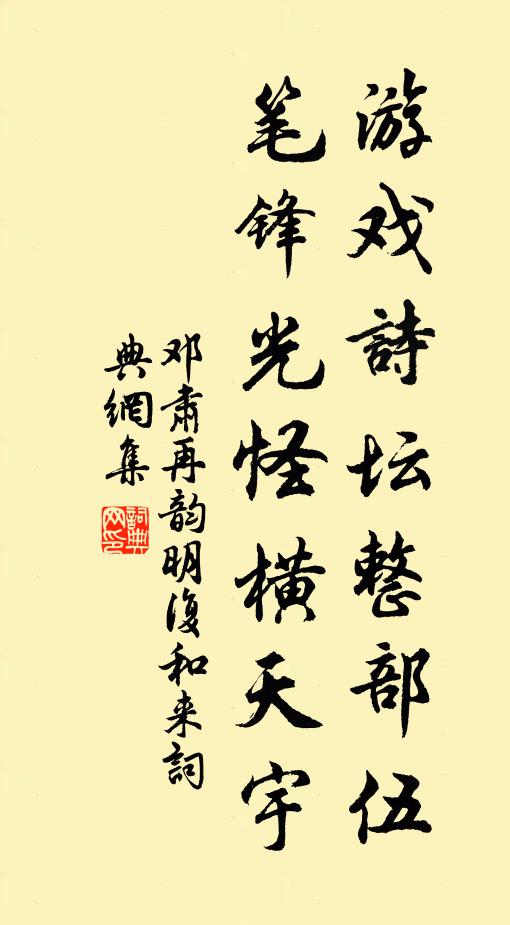 游戏詩坛整部伍
笔锋光怪横天宇
邓肃再韵明復和来詞
典網集
詞典网印